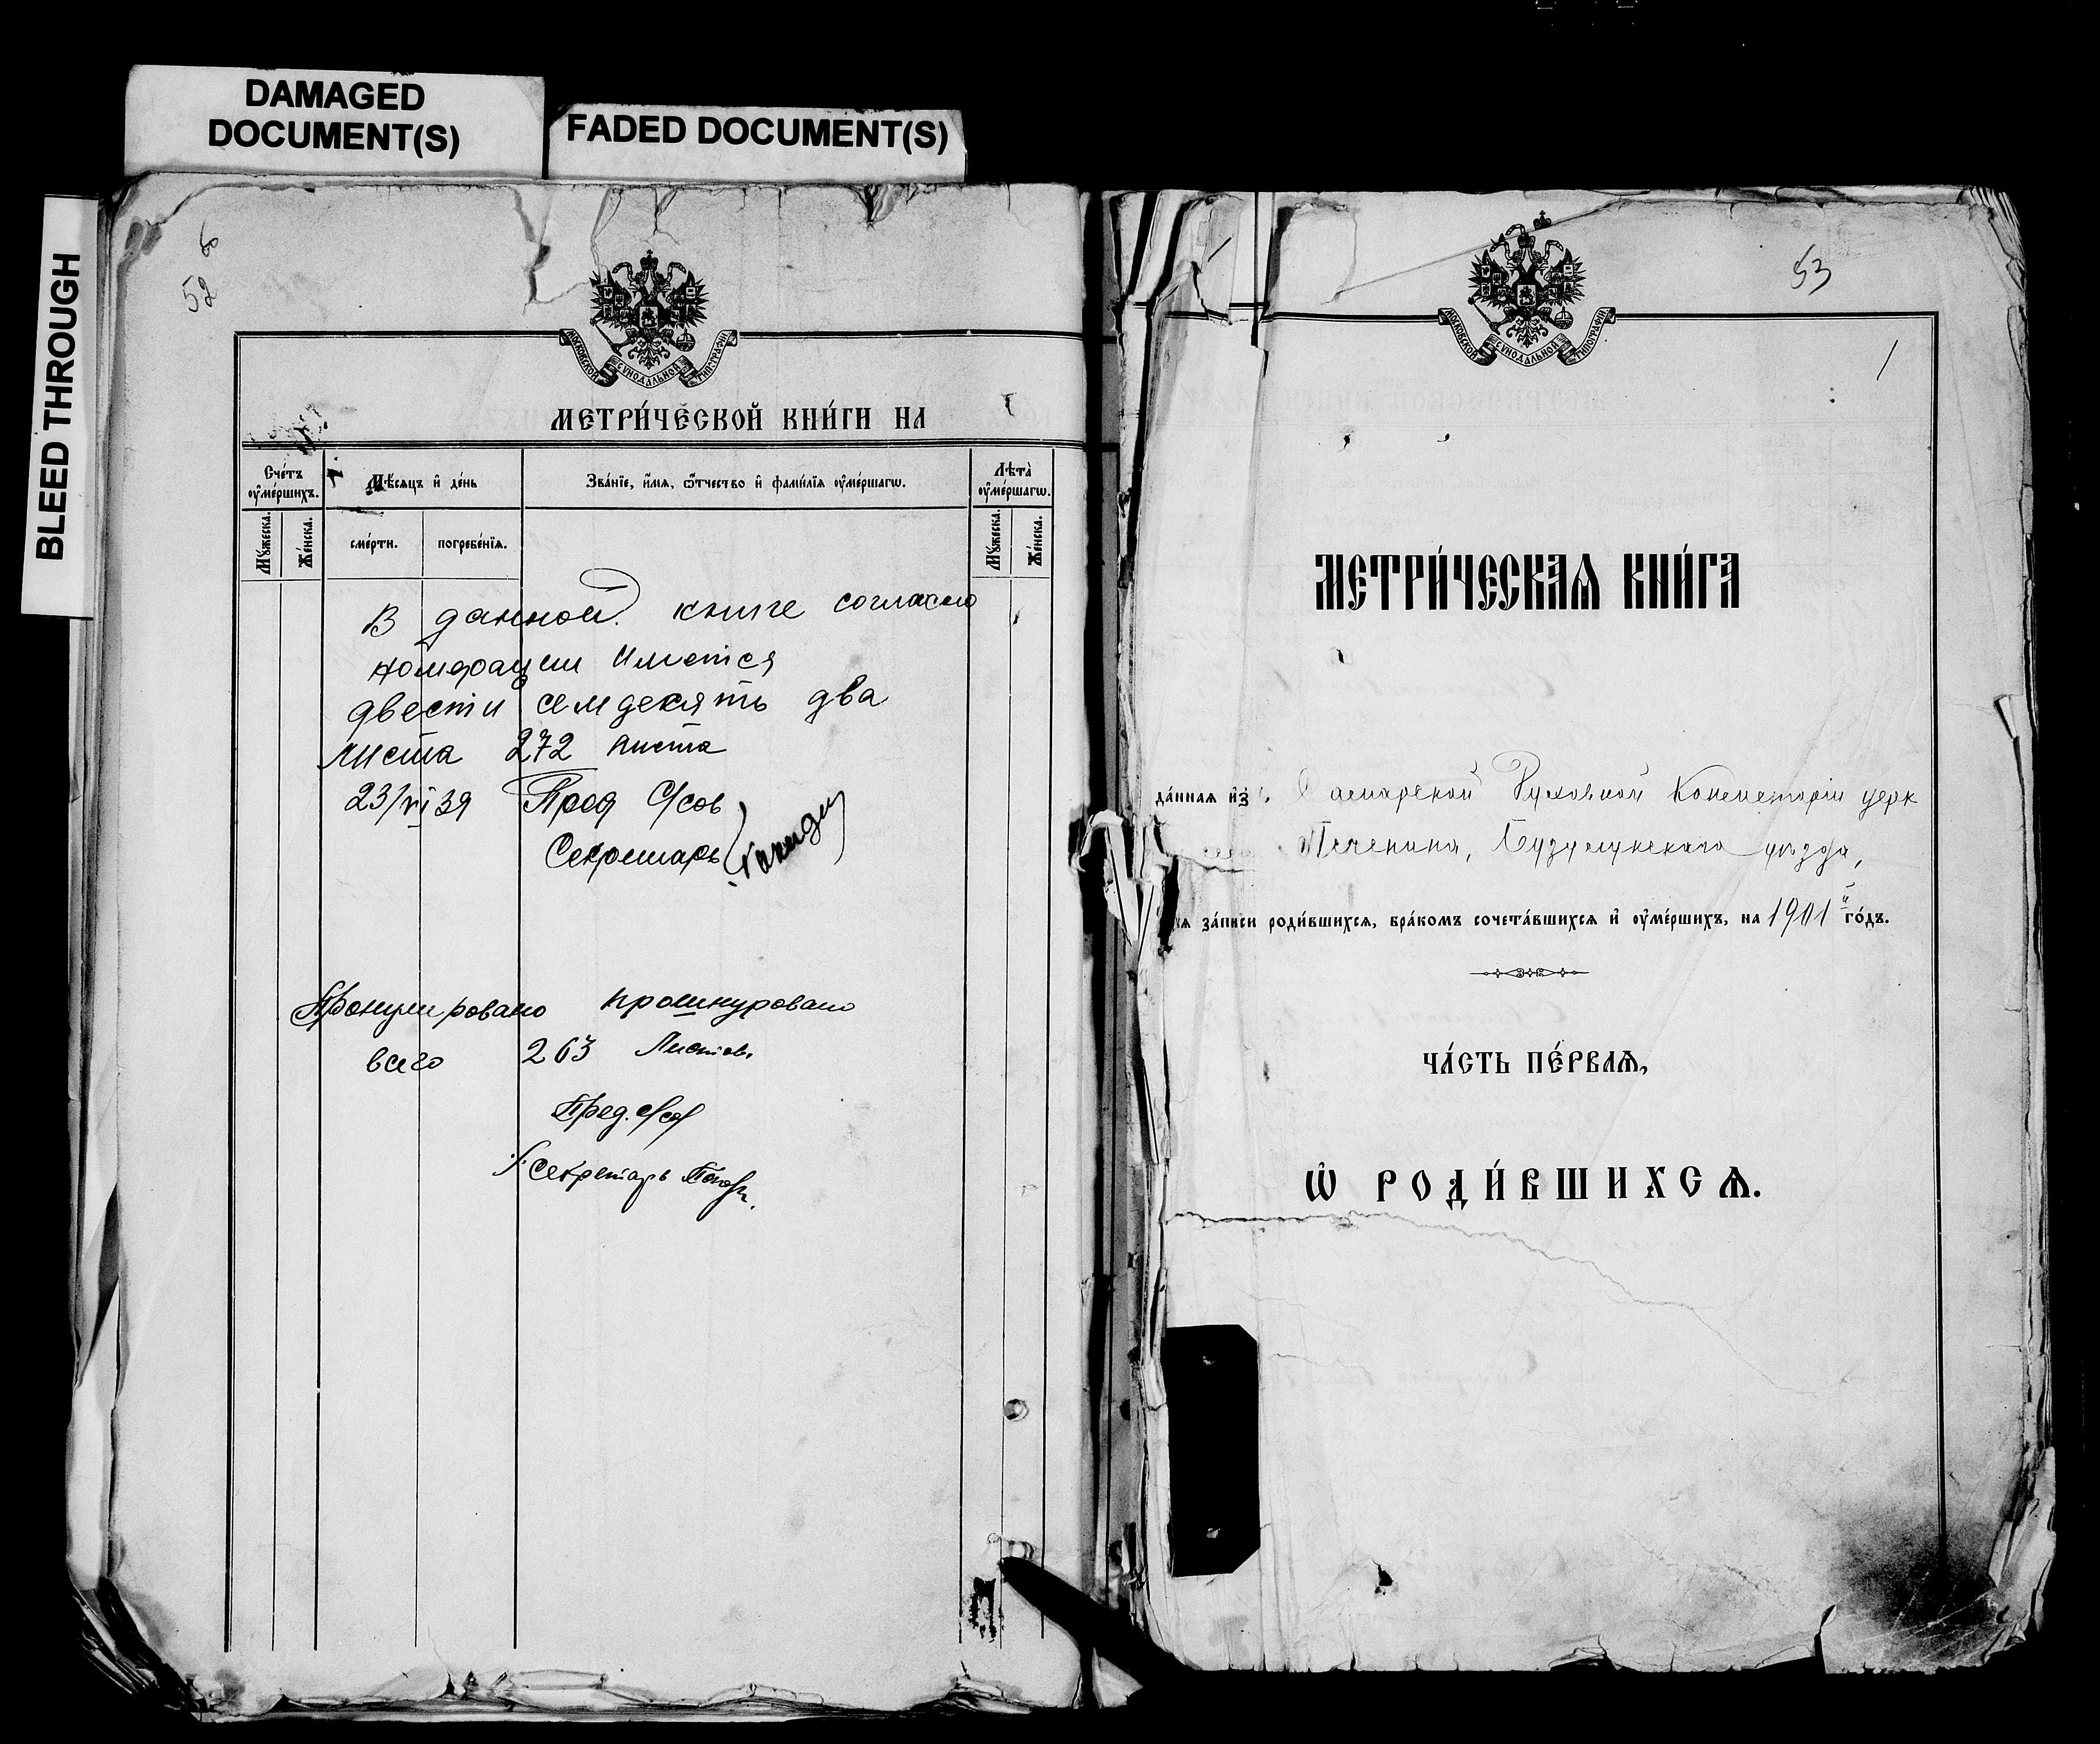 DAMAGED
DOCUMENT(S)
FADED DOCUMENT(S)
BLEED THROUGH
52
МОСКОВСКОЙ СѴНОДАЛЬНОЙ ТИПОГРАФІИ
МЕТРИ́ЧЕСКОЙ КНИ́ГИ НА
Сче́тъ ᲂу҆ме́ршихъ.
Мѣ́сяцъ и҆ де́нь
Зва́нїе, и҆́мя, ѻ҆́тчество и҆ фами́лїя ᲂу҆ме́ршагѡ.
Лѣта̀ ᲂу҆ме́ршагѡ.
Мꙋ́жеска.
Же́нска.
сме́рти.
погребе́нїя.
Мꙋ́жеска.
Же́нска.
В данной книге согласно
номерации имется
двести семдесять два
листа 272 листа
23/VI 39 Пред С/сов
Секретарь
Пронумеровано прошнуровано
всего 263 листов
Пред. С/сов
Секретарь
53
1
МОСКОВСКОЙ СѴНОДАЛЬНОЙ ТИПОГРАФІИ
МЕТРИ́ЧЕСКАѦ КНИ́ГА
да́нная и҆з Самарской Духовной Консисторіи
Бузулукскаго уѣзда,
за́писи роди́вшихся, бра́комъ сочета́вшихся и҆ ᲂу҆ме́ршихъ, на 1901й го́дъ.
ЧА́СТЬ ПЕ́РВАѦ,
Ѡ҆ РОДИ́ВШИХСѦ.